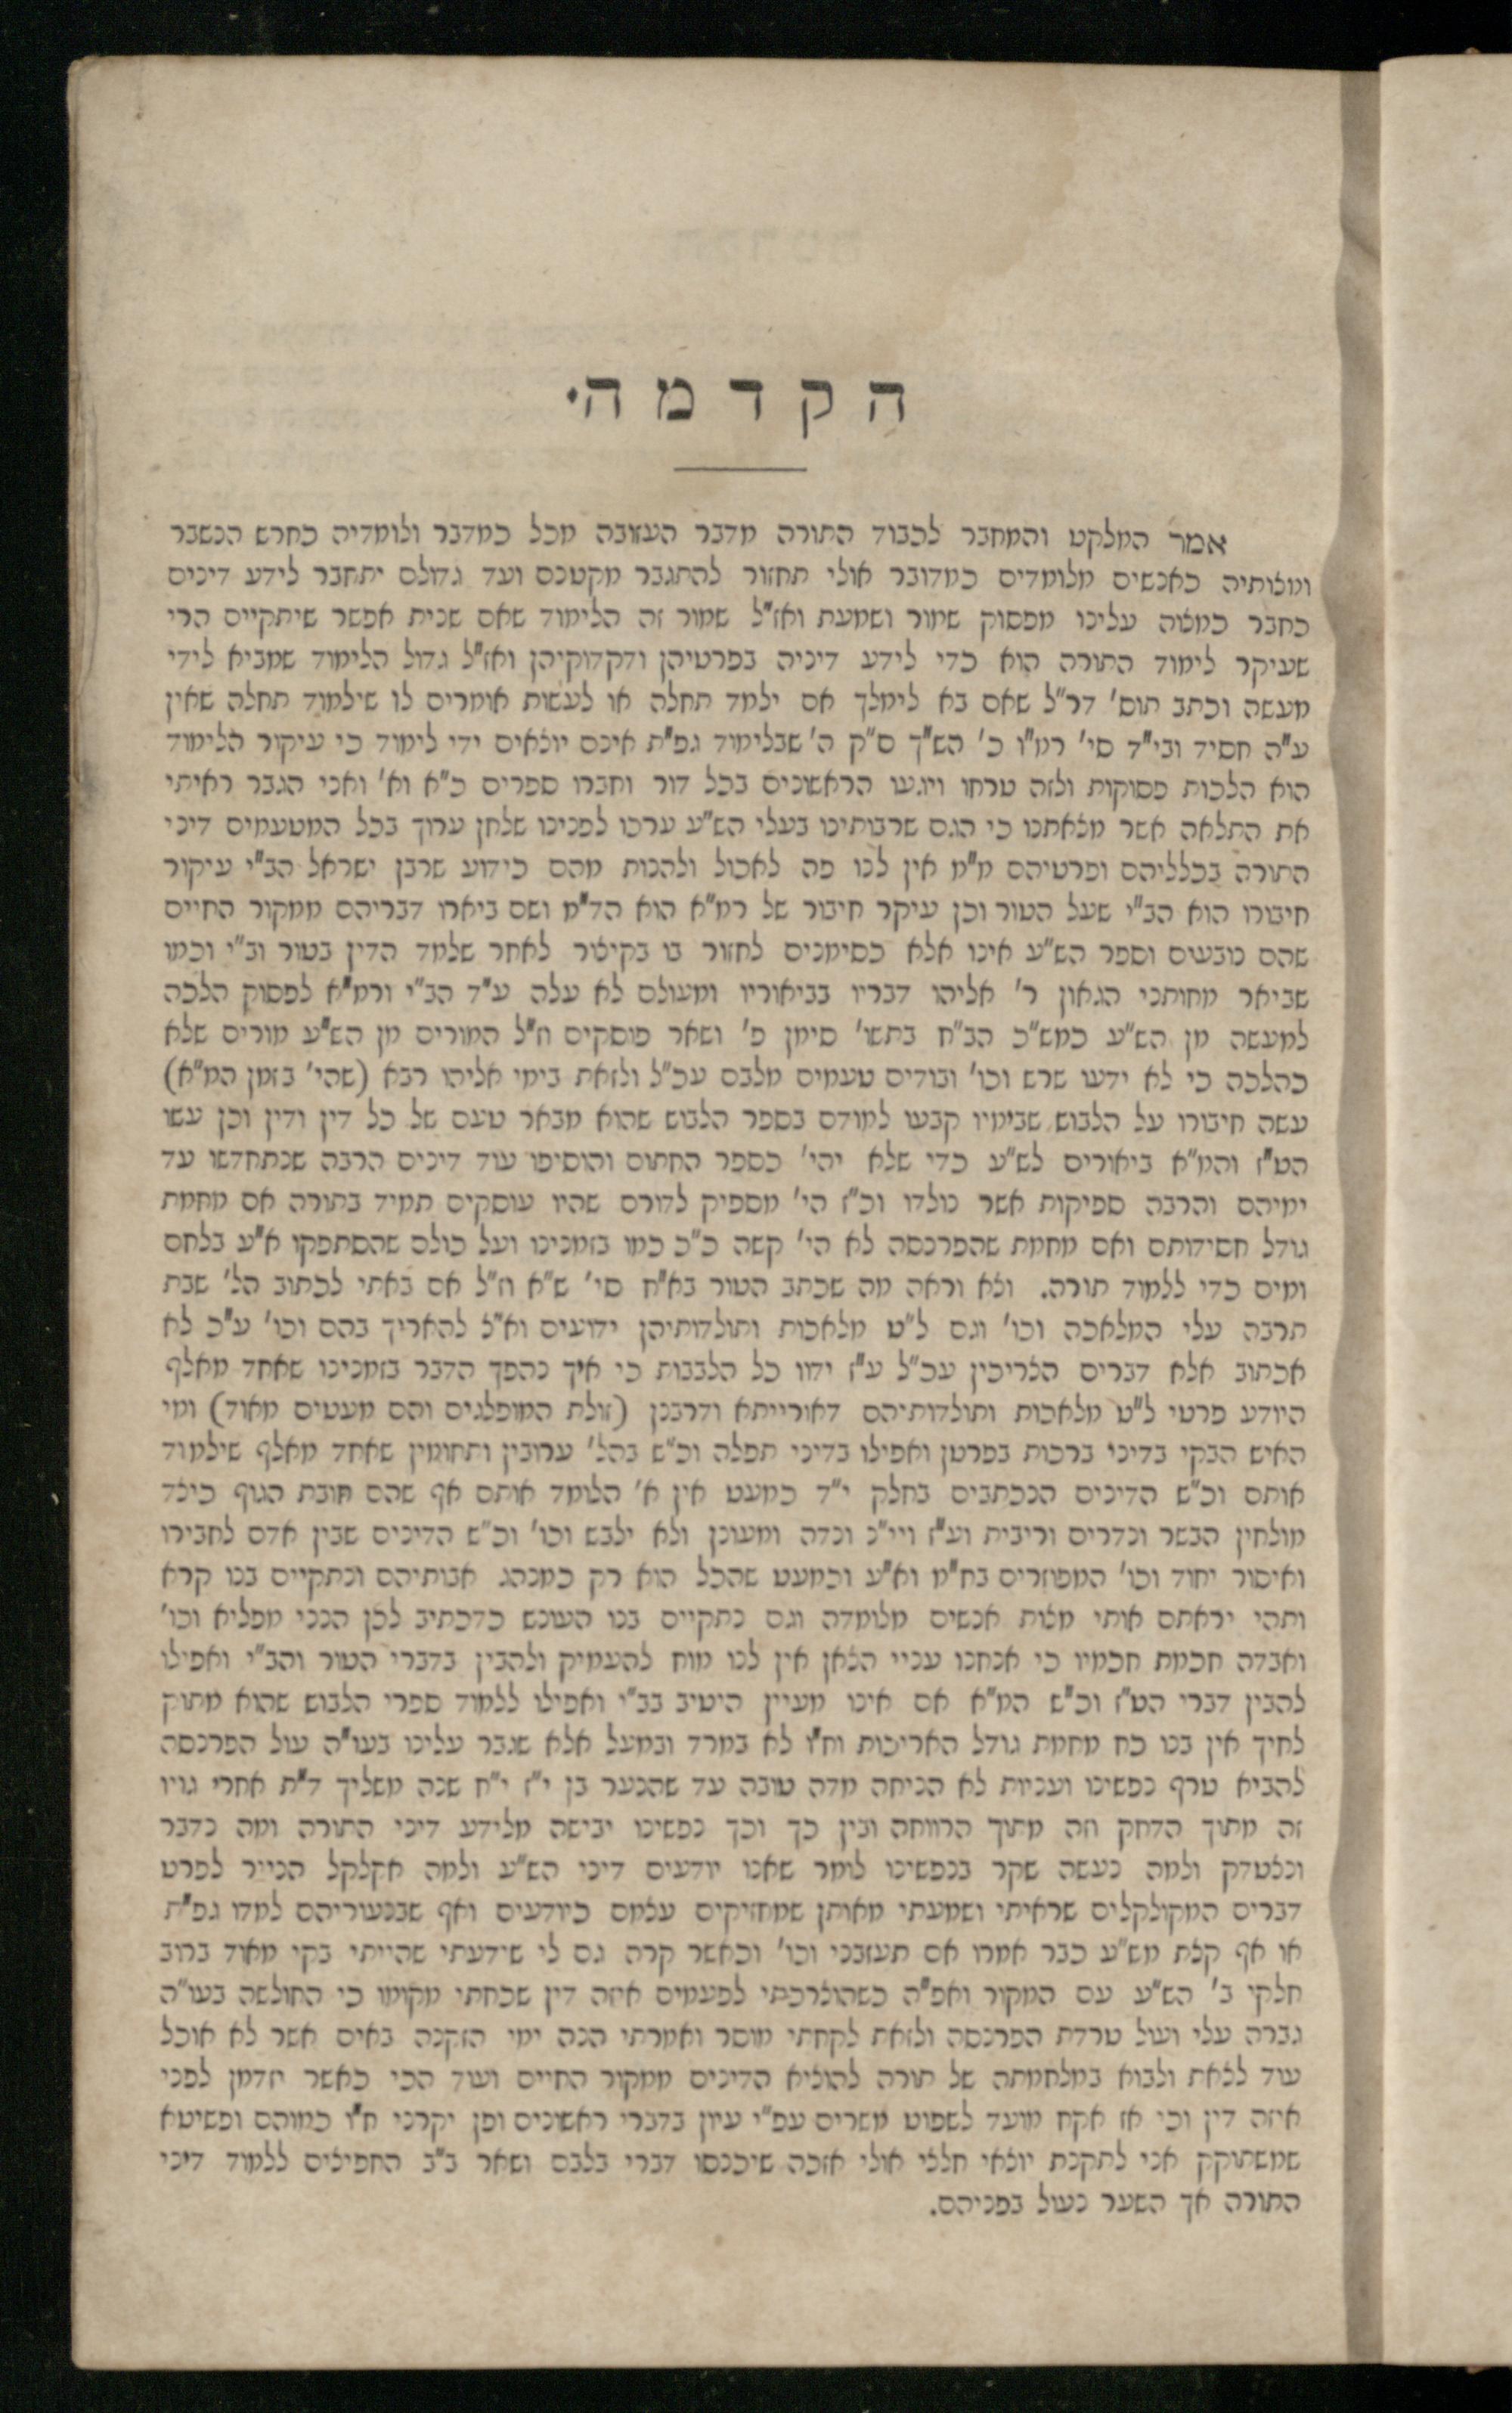 הקדמה.
אמר המלקט והמחבר לכבוד התורה מדבר העזובה מכל כמדבר ולומדיה כחרש הנשבר
ומצותיה כאנשים מלומדים כמדובר אולי תחזור להתגבר מקטנם ועד גדולם יתחבר לידע דינים
כחבר כמצוה עלינו מפסוק שמור ושמעת ואז"ל שמור זה הלימוד שאם שנית אפשר שיתקיים הרי
שעיקר לימוד התורה הוא כדי לידע דיניה בפרטיהן ודקדוקיהן ואז"ל גדול הלימוד שמביא לידי
מעשה וכתב תוס' דר"ל שאם בא לימלך אם ילמד תחלה או לעשות אומרים לו שילמוד תחלה שאין
ע"ה חסיד ובי"ד סי' רמ"ו כ' הש"ך ס"ק ה' שבלימוד גפ"ת אינם יוצאים ידי לימוד כי עיקור הלימוד
הוא הלכות פסוקות ולזה טרחו ויגעו הראשונים בכל דור וחברו ספרים כ"א וא' ואני הגבר ראיתי
את התלאה אשר מצאתנו כי הגם שרבותינו בעלי הש"ע ערכו לפנינו שלחן ערוך בכל המטעמים דיני
התורה בכלליהם ופרטיהם מ"מ אין לנו פה לאכול ולהנות מהם כידוע שרבן ישראל הב"י עיקור
חיבורו הוא הב"י שעל הטור וכן עיקר חיבור של רמ"א הוא הד"מ ושם ביארו דבריהם ממקור החיים
שהם נובעים וספר הש"ע אינו אלא כסימנים לחזור בו בקיצור לאחר שלמד הדין בטור וב"י וכמו
שביאר מחותני הגאון ר' אליהו דבריו בביאוריו ומעולם לא עלה ע"ד הב"י ורמ"א לפסוק הלכה
למעשה מן הש"ע כמש"כ הב"ח בתשו' סימן פ' ושאר פוסקים וז"ל המורים מן הש"ע מורים שלא
כהלכה כי לא ידעו שרש וכו' ובודים טעמים מלבם עכ"ל ולזאת בימי אליהו רבא (שהי' בזמן המ"א)
עשה חיבורו על הלבוש שבימיו קבעו למודם בספר הלבוש שהוא מבאר טעם של כל דין ודין וכן עשו
הט"ז והמ"א ביאורים לש"ע כדי שלא יהי' כספר החתום והוסיפו עוד דינים הרבה שנתחדשו עד
ימיהם והרבה ספיקות אשר נולדו וכ"ז הי' מספיק לדורם שהיו עוסקים תמיד בתורה אם מחמת
גודל חסידותם ואם מחמת שהפרנסה לא הי' קשה כ"כ כמו בזמנינו ועל כולם שהסתפקו א"ע בלחם
ומים כדי ללמוד תורה. וצא וראה מה שכתב הטור בא"ח סי' ש"א וז"ל אם באתי לכתוב הל' שבת
תרבה עלי המלאכה וכו' וגם ל"ט מלאכות ותולדותיהן ידועים וא"צ להאריך בהם וכו' ע"כ לא
אכתוב אלא דברים הצריכין עכ"ל ע"ז ידוו כל הלבבות כי איך נהפך הדבר בזמנינו שאחד מאלף
היודע פרטי ל"ט מלאכות ותולדותיהם דאורייתא ודרבנן (זולת המופלגים והם מעטים מאוד) ומי
האיש הבקי בדיני ברכות בפרטן ואפילו בדיני תפלה וכ"ש בהל' ערובין ותחומין שאחד מאלף שילמוד
אותם וכ"ש הדינים הנכתבים בחלק י"ד כמעט אין א' הלומד אותם אף שהם חובת הגוף כיצד
מולחין הבשר ונדרים וריבית וע"ז ויי"נ ונדה ומעונן ולא ילבש וכו' וכ"ש הדינים שבין אדם לחבירו
ואיסור יחוד וכו' המפוזרים בח"מ וא"ע וכמעט שהכל הוא רק כמנהג אבותיהם ונתקיים בנו קרא
ותהי יראתם אותי מצות אנשים מלומדה וגם נתקיים בנו העונש כדכתיב לכן הנני מפליא וכו'
ואבדה חכמת חכמיו כי אנחנו עניי הצאן אין לנו מוח להעמיק ולהבין בדברי הטור והב"י ואפילו
להבין דברי הט"ז וכ"ש המ"א אם אינו מעיין היטיב בב"י ואפילו ללמוד ספרי הלבוש שהוא מתוק
לחיך אין בנו כח מחמת גודל האריכות וח"ו לא במרד ובמעל אלא שגבר עלינו בעו"ה עול הפרנסה
להביא טרף נפשינו ועניות לא הניחה מדה טובה עד שהנער בן י"ז י"ח שנה משליך ד"ת אחרי גויו
זה מתוך הדחק וזה מתוך הרווחה ובין כך וכך נפשינו יבישה מלידע דיני התורה ומה נדבר
ונצטדק ולמה נעשה שקר בנפשינו לומר שאנו יודעים דיני הש"ע ולמה אקלקל הנייר לפרט
דברים המקולקלים שראיתי ושמעתי מאותן שמחזיקים עצמם כיודעים ואף שבנעוריהם למדו גפ"ת
או אף קצת מש"ע כבר אמרו אם תעזבני וכו' וכאשר קרה גם לי שידעתי שהייתי בקי מאוד ברוב
חלקי ב' הש"ע עם המקור ואפ"ה כשהוצרכתי לפעמים איזה דין שכחתי מקומו כי החולשה בעו"ה
גברה עלי ועול טרדת הפרנסה ולזאת לקחתי מוסר ואמרתי הנה ימי הזקנה באים אשר לא אוכל
עוד לצאת ולבוא במלחמתה של תורה להוציא הדינים ממקור החיים ועוד הכי כאשר יזדמן לפני
איזה דין וכי אז אקח מועד לשפוט משרים עפ"י עיון בדברי ראשונים ופן יקרני ח"ו כמוהם ופשיטא
שמשתוקק אני לתקנת יוצאי חלצי אולי אזכה שיכנסו דברי בלבם ושאר ב"ב החפיצים ללמוד דיני
התורה אך השער נעול בפניהם.